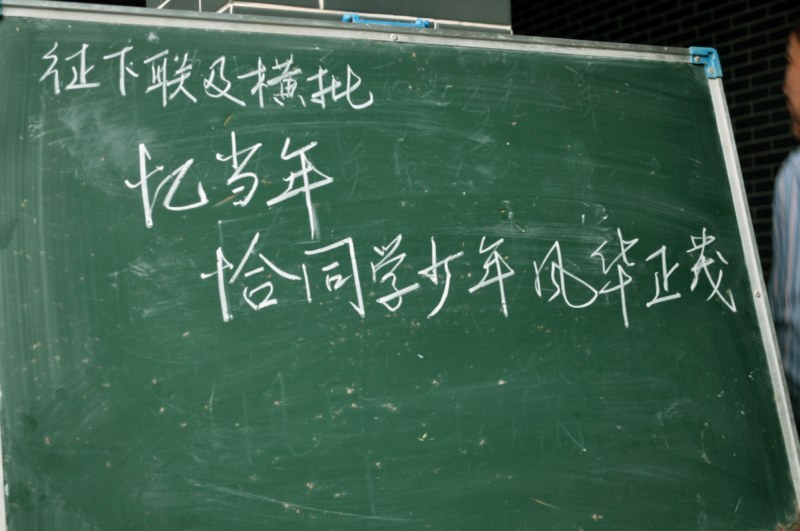 征下联及横批
忆当年
恰同学少年风华正茂